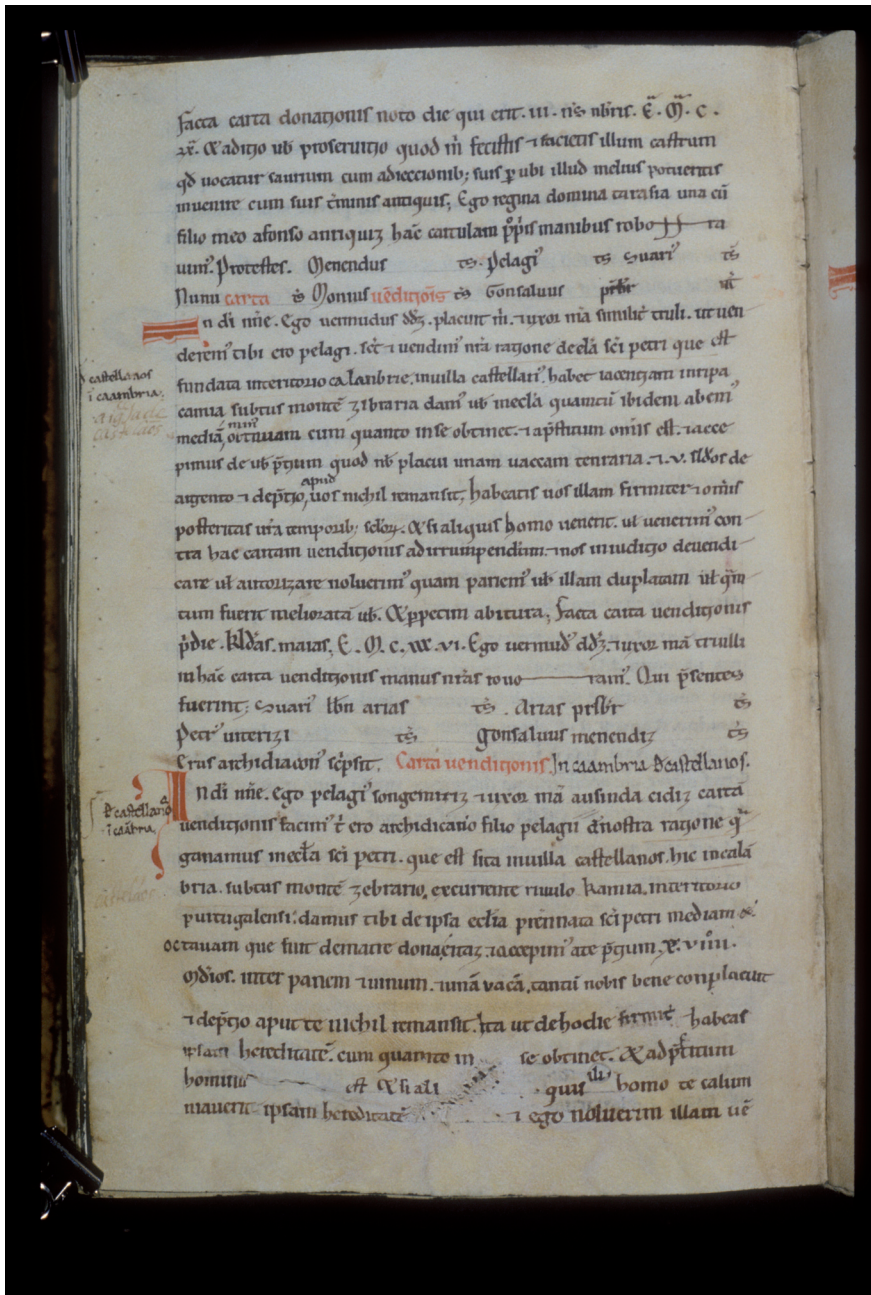 facta carta donationis noto die qui erit. iii. nꝰs nbris. E. M. c.
Et aditio uob proseruitio quod m̄ fecistis ⁊ facietis illum castrum
qd uocatur saurium cum adieccionib; suis ꝑ ubi illud melius potueritis
inuenire cum suis t̄minis antiquis; Ego regina domina tarasia una cū
filio meo afonso anriquiz hāc cartulam p̄pīs manibus robo ra
uimꝰ. Protestes. Menendus ts̄. Pelagiꝰ ts̄ Suariꝰ ts̄
Nunu carta ts̄ Monius uēditiōīs ts̄ Gonsaluus pr̄b̄r
n di nn̄e. Ego uermudus ddz. placuit m̄. ⁊ uxor mā similit̄ truli. ut uen
derem̄ꝰ tibi ero pelagi. sct̄ ⁊ uendimꝰ nr̄a ratione de ecl̄a sc̄i petri que est
fundata interitorio calanbrie. inuilla castellanꝰ. habet iacentiam inripa
camia subtus monte zibraria damꝰ uob mecl̄a quantū ibidem abemꝰ
mediā, mīnꝰ octauam cum quanto inse obtinet. ⁊ ap̄stitum omīs est. ⁊ acce
pimus de uob p̄tium quod nob placui unam uaccam tenraria. ⁊. v. sldos de
argento ⁊ dep̄tio, apud uos nichil remansit; habeatis uos illam firmiter ⁊ om̄is
posteritas ur̄a temporib; sclor̄. Et si aliquis homo uenerit. ul uenerimꝰ con
tra hāc cartam uenditionis ad irrumpendum. ⁊ nos iniuditio deuendi
care ul autorizare noluerimꝰ quam pariemꝰ uob illam duplatam ul qm̄
tum fuerit meliorata uob. Et ꝑpetim abitura; facta carta uenditionis
p̄die. kldas. maias; E. M. c. xxx. vi. Ego uermudꝰ ddz. ⁊ uxor mā truilli
in hāc carta uenditionis manus nr̄as rouo ramꝰ. Qui p̄sentes
fuerint; Suariꝰ lbn arias ts̄. Arias prsbr ts̄
Petrꝰ uiterizi ts̄ gonsaluus menendiz ts̄
Erus archidiaconꝰ sc̄psit. Carta uenditionis. In caambria. De castellanos.
n di nn̄e. Ego pelagiꝰ songemiriz ⁊ uxor mā ausinda cidiz cartā
uenditionis facimꝰ t̄ ero archidicario filio pelagii de nostra ratione q̄
ganamus inecl̄a sc̄i petri. que est sita inuilla castellanos. hic incala
bria. subtus monte zebrario. excurrente riuulo kamia. interitorio
purtugalensi. damus tibi de ipsa ecl̄ia prennata sc̄i petri mediam
octauam que fuit dematre donacitaz. ⁊ accepimꝰ ate p̄tium. x. viiii.
Mdios. inter panem ⁊ uinum. ⁊ unā vacā. tantū nobis bene conplacuit
⁊ dep̄tio aput te nichil remansit. Ita ut dehodie firmit̄ habeas
ipsam hereditatē. cum quanto in se obtinet. Et adp̄stitum
hominis est Et si ali quis homo te calum
niauerit ipsam hereditatē ⁊ ego noluerim illam uē
castellanos
ī caambria.
De castellanos
ī caābria